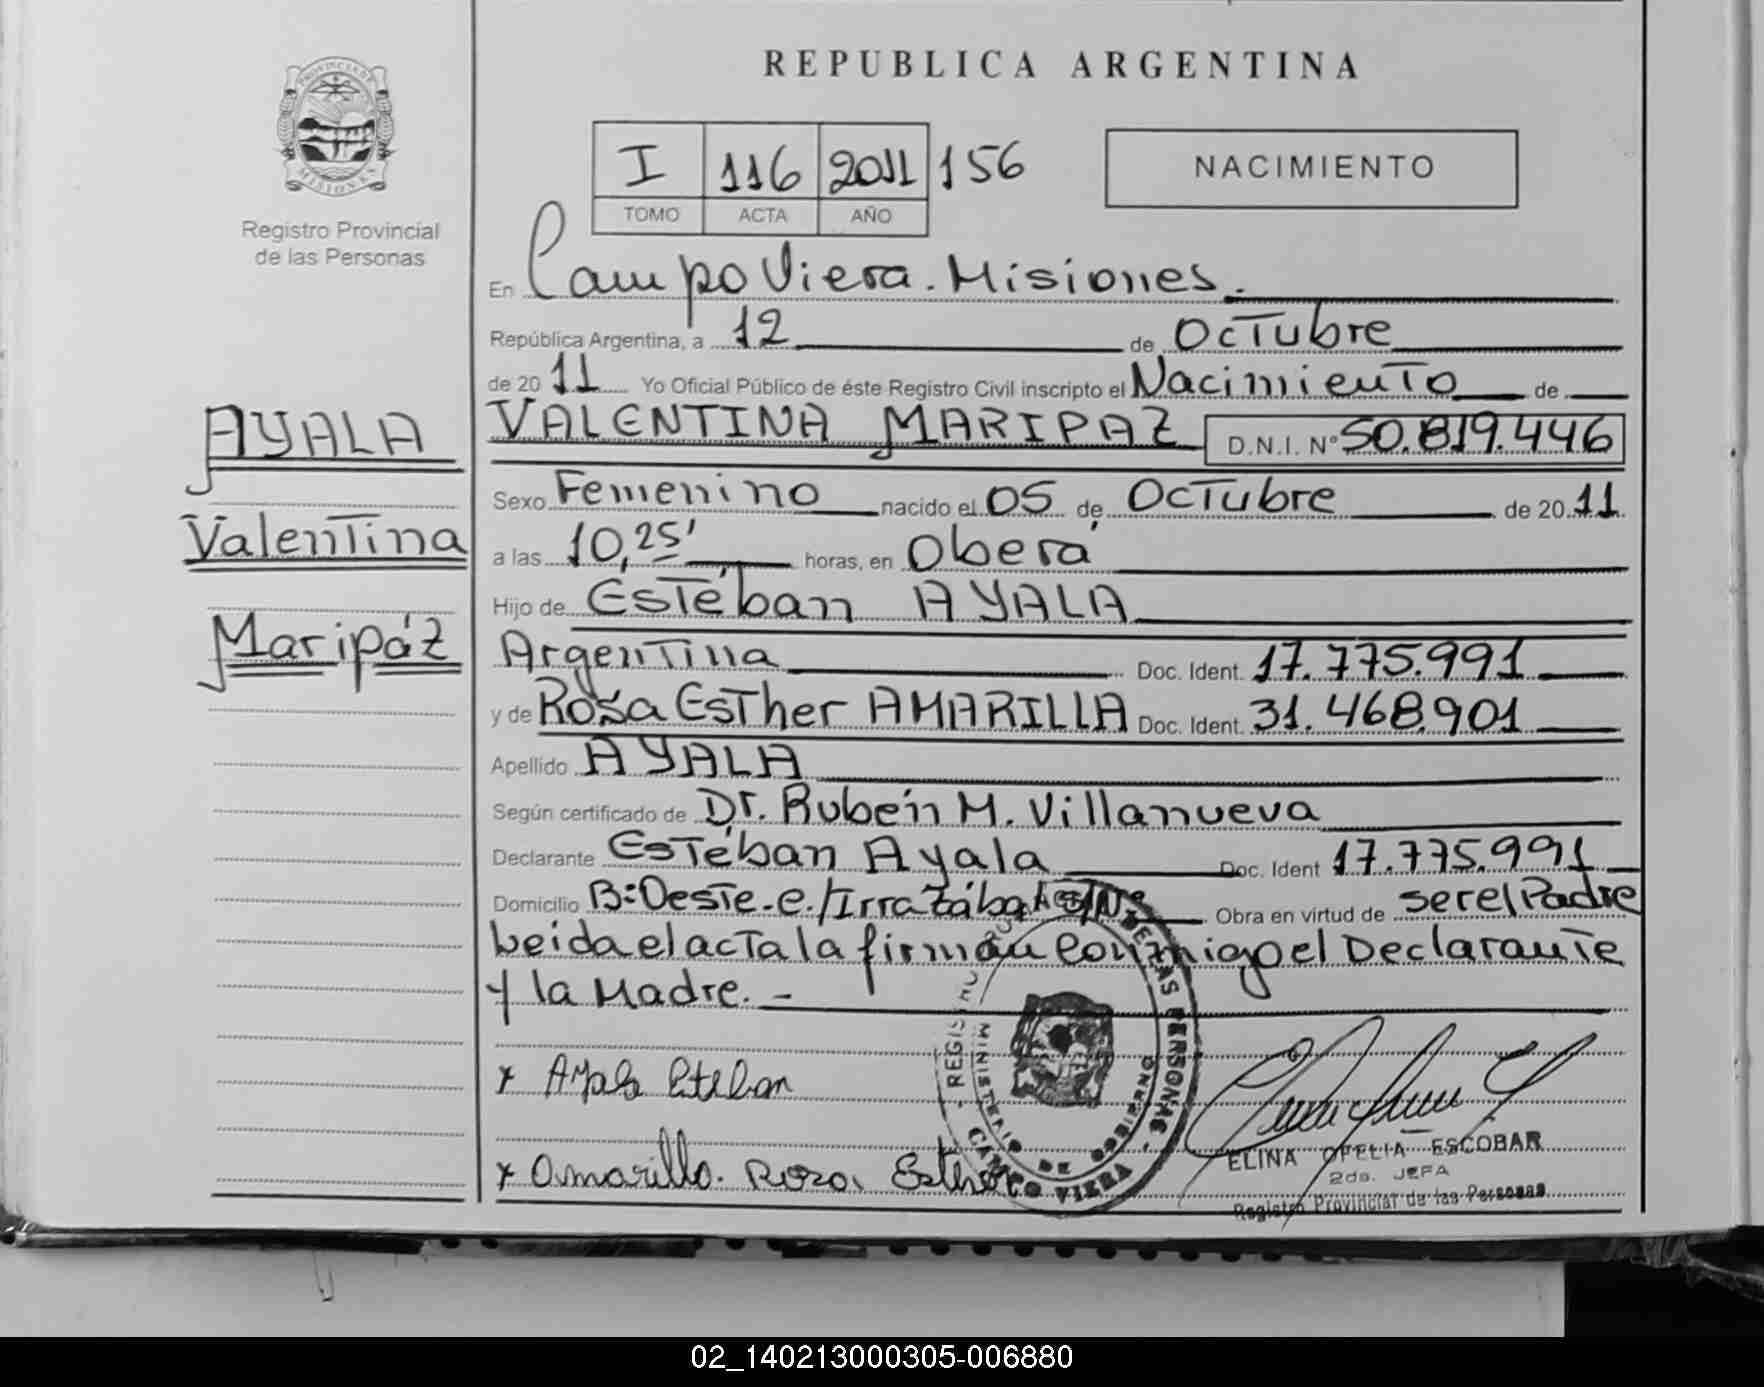 REPUBLICA ARGENTINA
PROVINCIA DE MISIONES
Registro Provincial
de las Personas
I 116 2011 156
TOMO ACTA AÑO
NACIMIENTO
En Campo Viera. Misiones.
República Argentina, a 12 de Octubre
de 20 11 Yo Oficial Público de éste Registro Civil inscripto el Nacimiento de
AYALA
Valentina
Maripáz
VALENTINA MARIPAZ D.N.I. Nº 50.819.446
Sexo Femenino nacido el 05 de Octubre de 20 11
a las 10,25' horas, en Oberá
Hijo de Estéban AYALA
Argentina Doc. Ident. 17.775.991
y de Rosa Esther AMARILLA Doc. Ident. 31.468.901
Apellido AYALA
Según certificado de Dr. Rubén M. Villanueva
Declarante Estéban Ayala Doc. Ident 17.775.991
Domicilio B: Oeste. e./Irrazábal S/Nº Obra en virtud de ser el Padre
Leida el acta la firman conmigo el Declarante
y la Madre. -
x Ayala Esteban
x Amarilla. Rosa. Esther
REGISTRO DE LAS PERSONAS - CAMPO VIERA -
MINISTERIO DE GOBIERNO
ELINA OFELIA ESCOBAR
2da. JEFA
Registro Provincial de las Personas
02_140213000305-006880